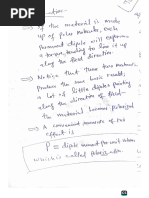 → If the material is made
up of polar molecules, each
permanent dipole will experience
a torque, tending to line it up
along the field direction.
→ Notice that these two mechanism
produce the same basic result;
a lot of little dipoles pointing
along the direction of field
the material becomes polarized
→ A convenient measure of this
effect is
P = dipole moment per unit volume
which is called polarization